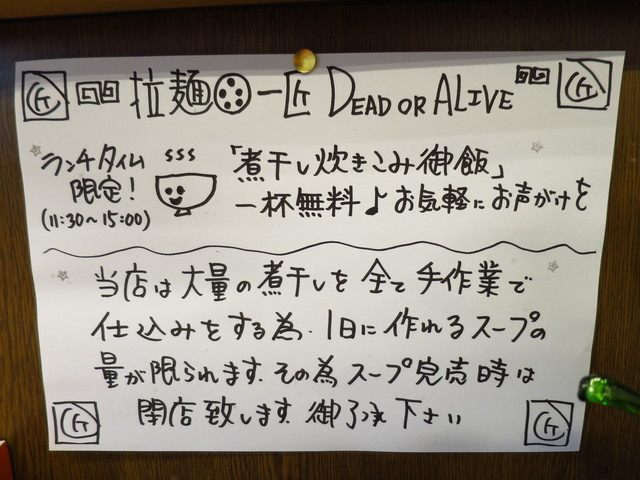 拉麺 一匠 DEAD OR ALIVE
ランチタイム
限定!
(11:30～15:00)
「煮干し炊きこみ御飯」
一杯無料♪お気軽にお声がけを
当店は大量の煮干しを全て手作業で
仕込みをする為、1日に作れるスープの
量が限られます。その為スープ完売時は
閉店致します。御了承下さい